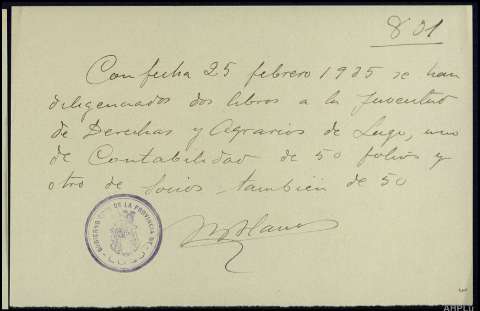 801
Con fecha 25 febrero 1935 se han
diligenciados dos libros a la Juventud
de Derechas y Agrarios de Lugo, uno
de Contabilidad de 50 folios y
otro de Socios también de 50
GOBIERNO CIVIL DE LA PROVINCIA DE
LUGO
AHPLu